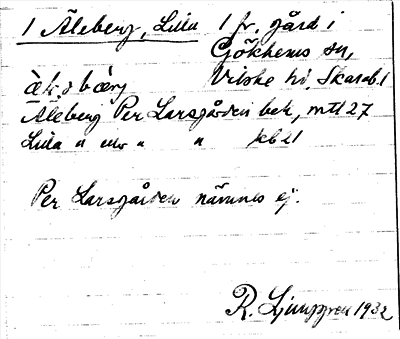 1 Äleberg, Lilla 1 fr. gård i
Gökhems sn,
Vilske hd, Skarab. l
Äleberg Per Larsgården bek, mtl 27
Lilla " " " kb 21
Per Larsgården nämnes ej.
R. Ljunggren 1932